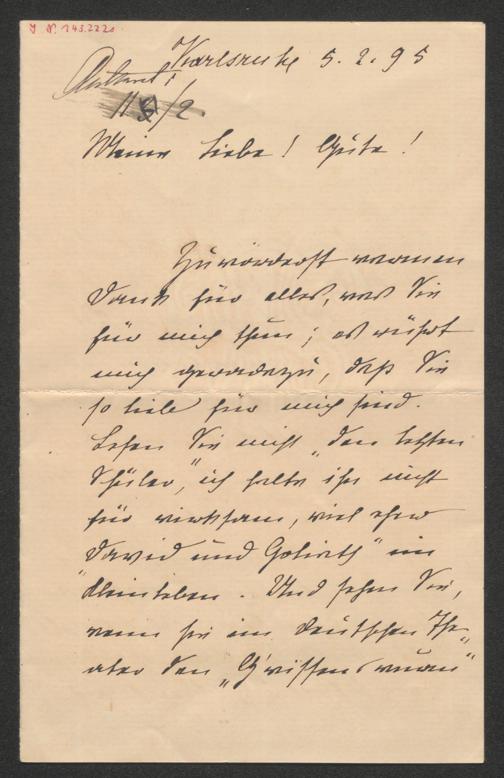 I. N. 143.222
Karlsruhe 5. 2. 95
Antwort
11/2
Meine Liebe! Gute!
Zuvörderst warmen
Dank für alles, was Sie
für mich thun; es rührt
mich geradezu, daß Sie
so liebe für mich sind.
Lesen Sie nicht "den letzten
Schüler," ich halte ihn nicht
für wirksam, viel eher
David und Goliath" im
"Kleinleben. Und sehen Sie,
wenn sie im deutschen The-
ater den "G'wissenswurm"